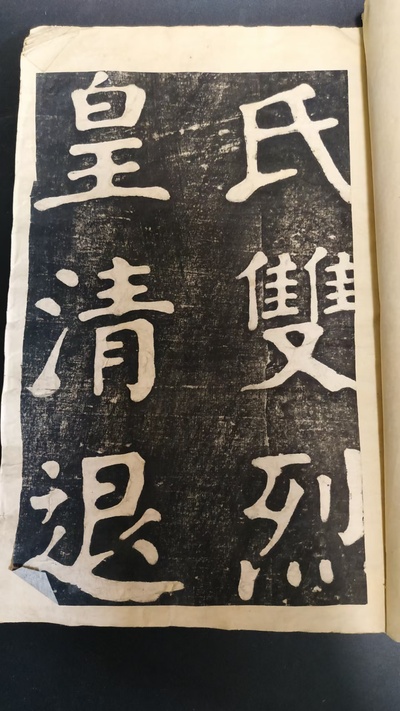 氏雙烈
皇清退